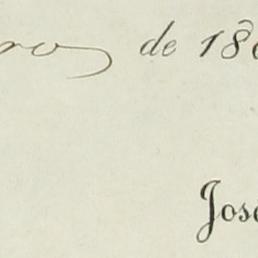 ro de 18
José